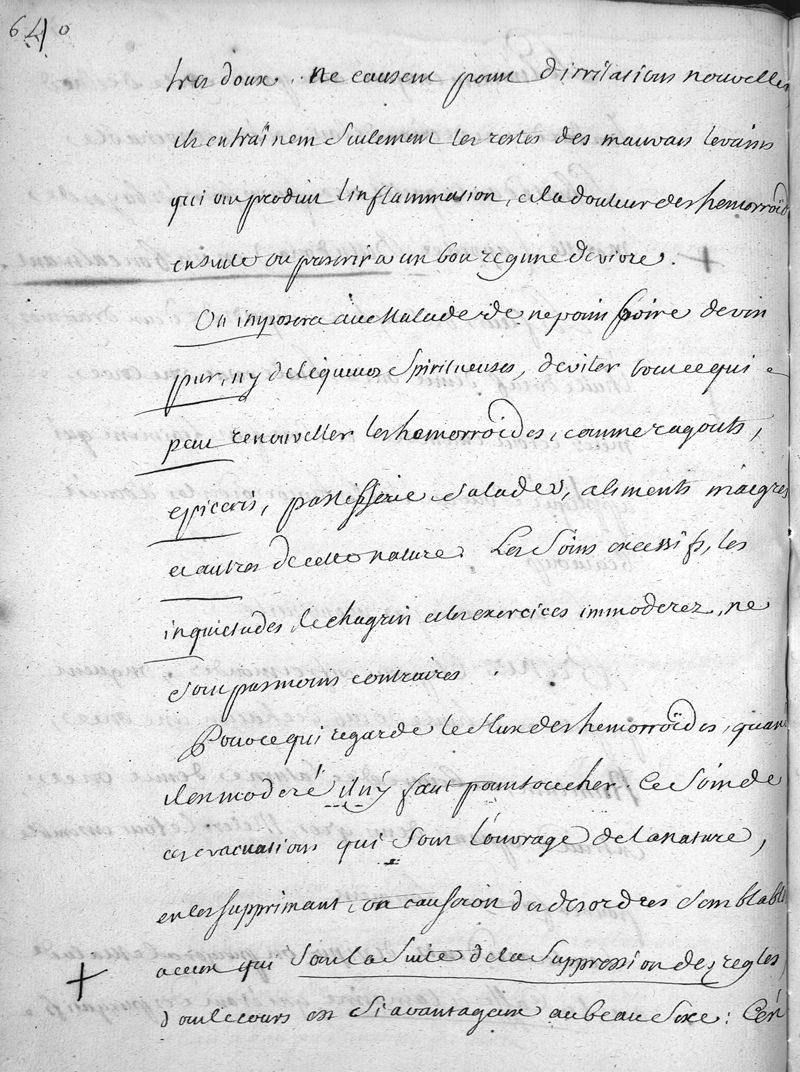 640
tres doux. ne causent point d'irritations nouvelles
ils entraînent seulement les restes des mauvais levains
qui ont produit l'inflammation, et la douleur des hemorroïdes
ensuite on prescrira un bon regime de vivre.
On imposera au Malade de ne point boire de vin
pur, ny de liqueurs spiritueuses, d'eviter tout ce qui
peut renouveller les hemorroïdes, comme ragouts,
epiceris, patisserie salades, aliments maigres
et autres de cette nature. Les soins excessifs, les
inquietudes le chagrin et les exercices immoderez, ne
sont pas moins contraires.
Pour ce qui regarde le flux des hemorroïdes, quand
il est moderé il n'y faut point toucher. Ce sont de
ces evacuations qui sont l'ouvrage de la nature,
en les supprimant, on causeroit des desordres semblables
a ceux qui sont la suite de la suppression des regles,
dont le cours est si avantageux au beau sexe :